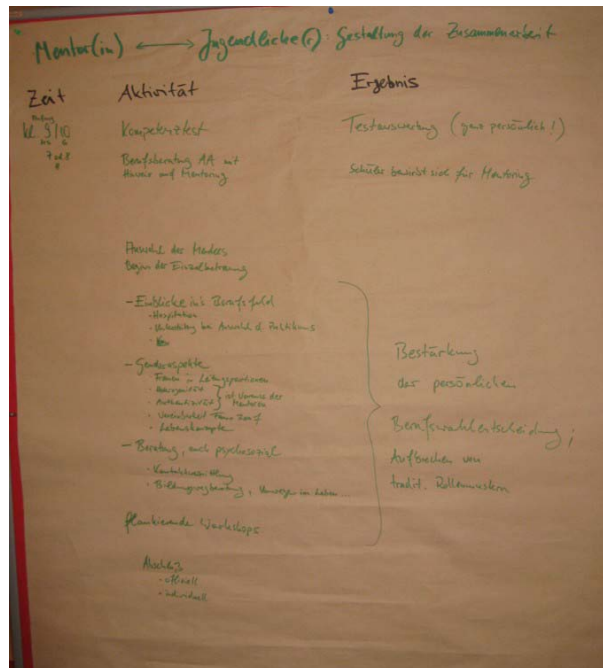 Mentor(in) ⟷ Jugendliche(r): Gestaltung der Zusammenarbeit
Zeit Aktivität Ergebnis
Kl. 9/10 Kompetenztest Testauswertung (ganz persönlich!)
Berufsberatung AA mit
Hinweis auf Mentoring Schüler bewirbt sich für Mentoring
Auswahl des Mentors
Beginn der Einzelbetreuung
- Einblicke in's Berufsfeld
- Hospitation
- bei Auswahl d. Praktikums
- Genderaspekte
- Frauen in Leitungspositionen
- Authentizität } ist Voraus. der
Mentoren
- Lebenskonzepte
- Beratung, auch psychosozial
- Kontaktvermittlung
- Bildungswegberatung, Umwege im Leben...
flankierende Workshops
Abschluß
- offiziell
- individuell
Bestärkung
der persönlichen
Berufswahlentscheidung;
Aufbrechen von
tradit. Rollenmustern